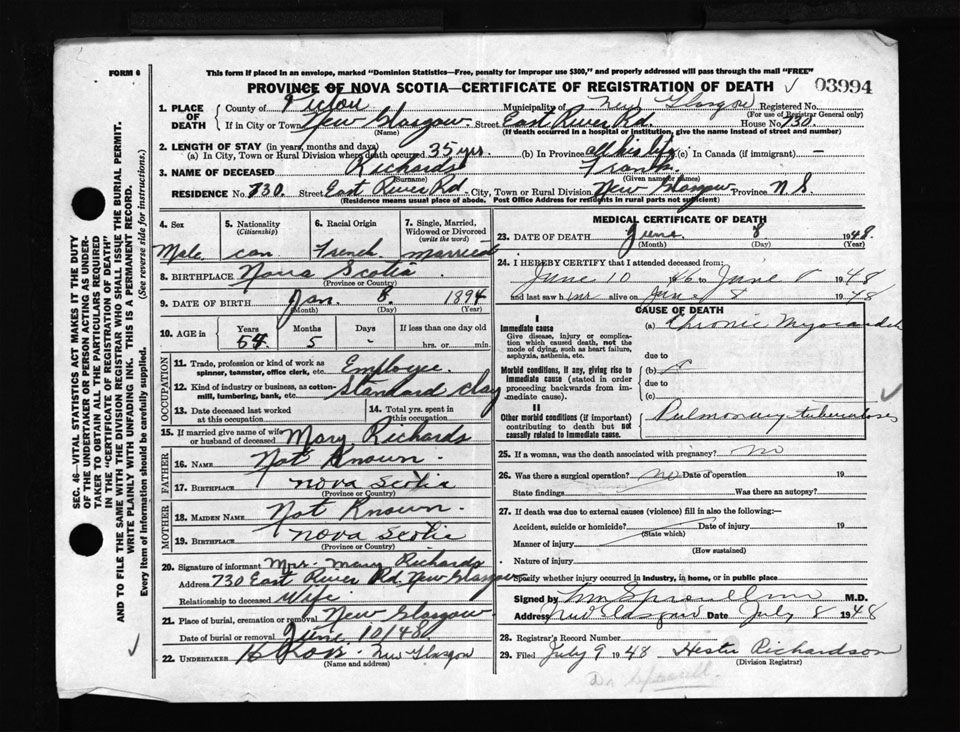 FORM 6
This form if placed in an envelope, marked "Dominion Statistics—Free, penalty for improper use $300," and properly addressed will pass through the mail "FREE"
PROVINCE OF NOVA SCOTIA—CERTIFICATE OF REGISTRATION OF DEATH
03994
1. PLACE OF DEATH County of Pictou Municipality of New Glasgow Registered No.
(For use of Registrar General only)
If in City or Town New Glasgow Street East River Rd House No. 730.
(Name) (If death occurred in a hospital or institution, give the name instead of street and number)
2. LENGTH OF STAY (in years, months and days)
(a) In City, Town or Rural Division where death occurred 35 yrs. (b) In Province all his life (c) In Canada (if immigrant) —
3. NAME OF DECEASED Richards Frank
(Surname) (Given name or names)
RESIDENCE No. 730. Street East River Rd City, Town or Rural Division New Glasgow Province N.S.
(Residence means usual place of abode. Post Office Address for residents in rural parts not sufficient)
SEC. 46—VITAL STATISTICS ACT MAKES IT THE DUTY
OF THE UNDERTAKER OR PERSON ACTING AS UNDER-
TAKER TO OBTAIN ALL THE PARTICULARS REQUIRED
IN THE "CERTIFICATE OF REGISTRATION OF DEATH"
AND TO FILE THE SAME WITH THE DIVISION REGISTRAR WHO SHALL ISSUE THE BURIAL PERMIT.
WRITE PLAINLY WITH UNFADING INK. THIS IS A PERMANENT RECORD.
Every item of information should be carefully supplied. (See reverse side for instructions.)
4. Sex
Male
5. Nationality
(Citizenship)
Can.
6. Racial Origin
French
7. Single, Married,
Widowed or Divorced
(write the word)
Married
8. BIRTHPLACE Nova Scotia
(Province or Country)
9. DATE OF BIRTH Jan. 8. 1894
(Month) (Day) (Year)
10. AGE in Years Months Days If less than one day old
54. 5 - hrs. or min.
OCCUPATION
11. Trade, profession or kind of work as
spinner, teamster, office clerk, etc. Employee
12. Kind of industry or business, as cotton-
mill, lumbering, bank, etc. Standard Clay
13. Date deceased last worked
at this occupation
14. Total yrs. spent in
this occupation
15. If married give name of wife
or husband of deceased Mary Richards
FATHER
16. NAME Not Known.
17. BIRTHPLACE Nova Scotia
(Province or Country)
MOTHER
18. MAIDEN NAME Not Known.
19. BIRTHPLACE Nova Scotia
(Province or Country)
20. Signature of informant Mrs. Mary Richards
Address 730 East River Rd. New Glasgow
Relationship to deceased Wife
21. Place of burial, cremation or removal New Glasgow
Date of burial or removal June 10/48.
22. UNDERTAKER New Glasgow
(Name and address)
MEDICAL CERTIFICATE OF DEATH
23. DATE OF DEATH June 8 1948.
(Month) (Day) (Year)
24. I HEREBY CERTIFY that I attended deceased from:
June 10 46 to June 8 1948
and last saw him alive on June 8 1948
CAUSE OF DEATH
I
Immediate cause
Give disease, injury or complica-
tion which caused death, not the
mode of dying, such as heart failure,
asphyxia, asthenia, etc.
(a) Chronic
due to
Morbid conditions, if any, giving rise to
immediate cause (stated in order
proceeding backwards from im-
mediate cause).
(b)
due to
(c)
II
Other morbid conditions (if important)
contributing to death but not
causally related to immediate cause.
Pulmonary tuberculosis
25. If a woman, was the death associated with pregnancy? no
26. Was there a surgical operation? no Date of operation 19
State findings Was there an autopsy?
27. If death was due to external causes (violence) fill in also the following:—
Accident, suicide or homicide? Date of injury 19
(State which)
Manner of injury
(How sustained)
Nature of injury
Specify whether injury occurred in industry, in home, or in public place
Signed by M.D.
Address New Glasgow Date July 8 1948
28. Registrar's Record Number
29. Filed July 9 1948 Hester Richardson
(Division Registrar)